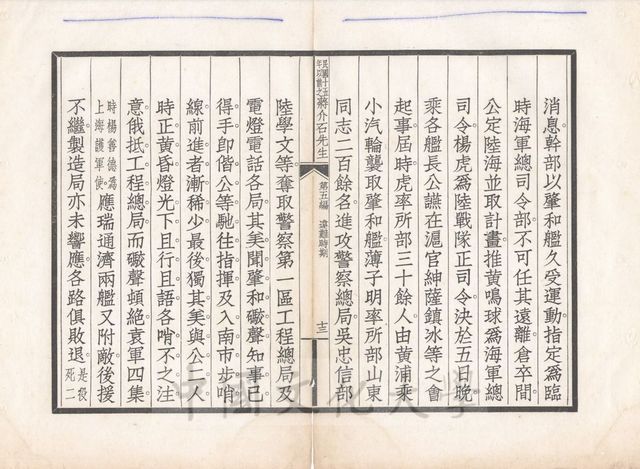 消息幹部以肇和艦久受運動指定為臨
時海軍總司令部不可任其遠離倉卒間
公定陸海並取計畫推黃鳴球為海軍總
司令楊虎為陸戰隊正司令決於五日晚
乘各艦長公讌在滬官紳薩鎮冰等之會
起事屆時虎率所部三十餘人由黃浦乘
小汽輪襲取肇和艦薄子明率所部山東
同志二百餘名進攻警察總局吳忠信部
民國十五年以前之蔣介石先生
第五編 違難時期
十三
陸學文等奪取警察第一區工程總局及
電燈電話各局其美聞肇和礮聲知事已
得手卽偕公等馳往指揮及入南市步哨
線前進者漸稀少最後獨其美與公二人
時正黃昏燈光下且行且語各哨不之注
意俄抵工程總局而礮聲頓絶袁軍四集
時楊善德為上海護軍使應瑞通濟兩艦又附敵後援
不繼製造局亦未響應各路俱敗退是役死二
中國文化大學